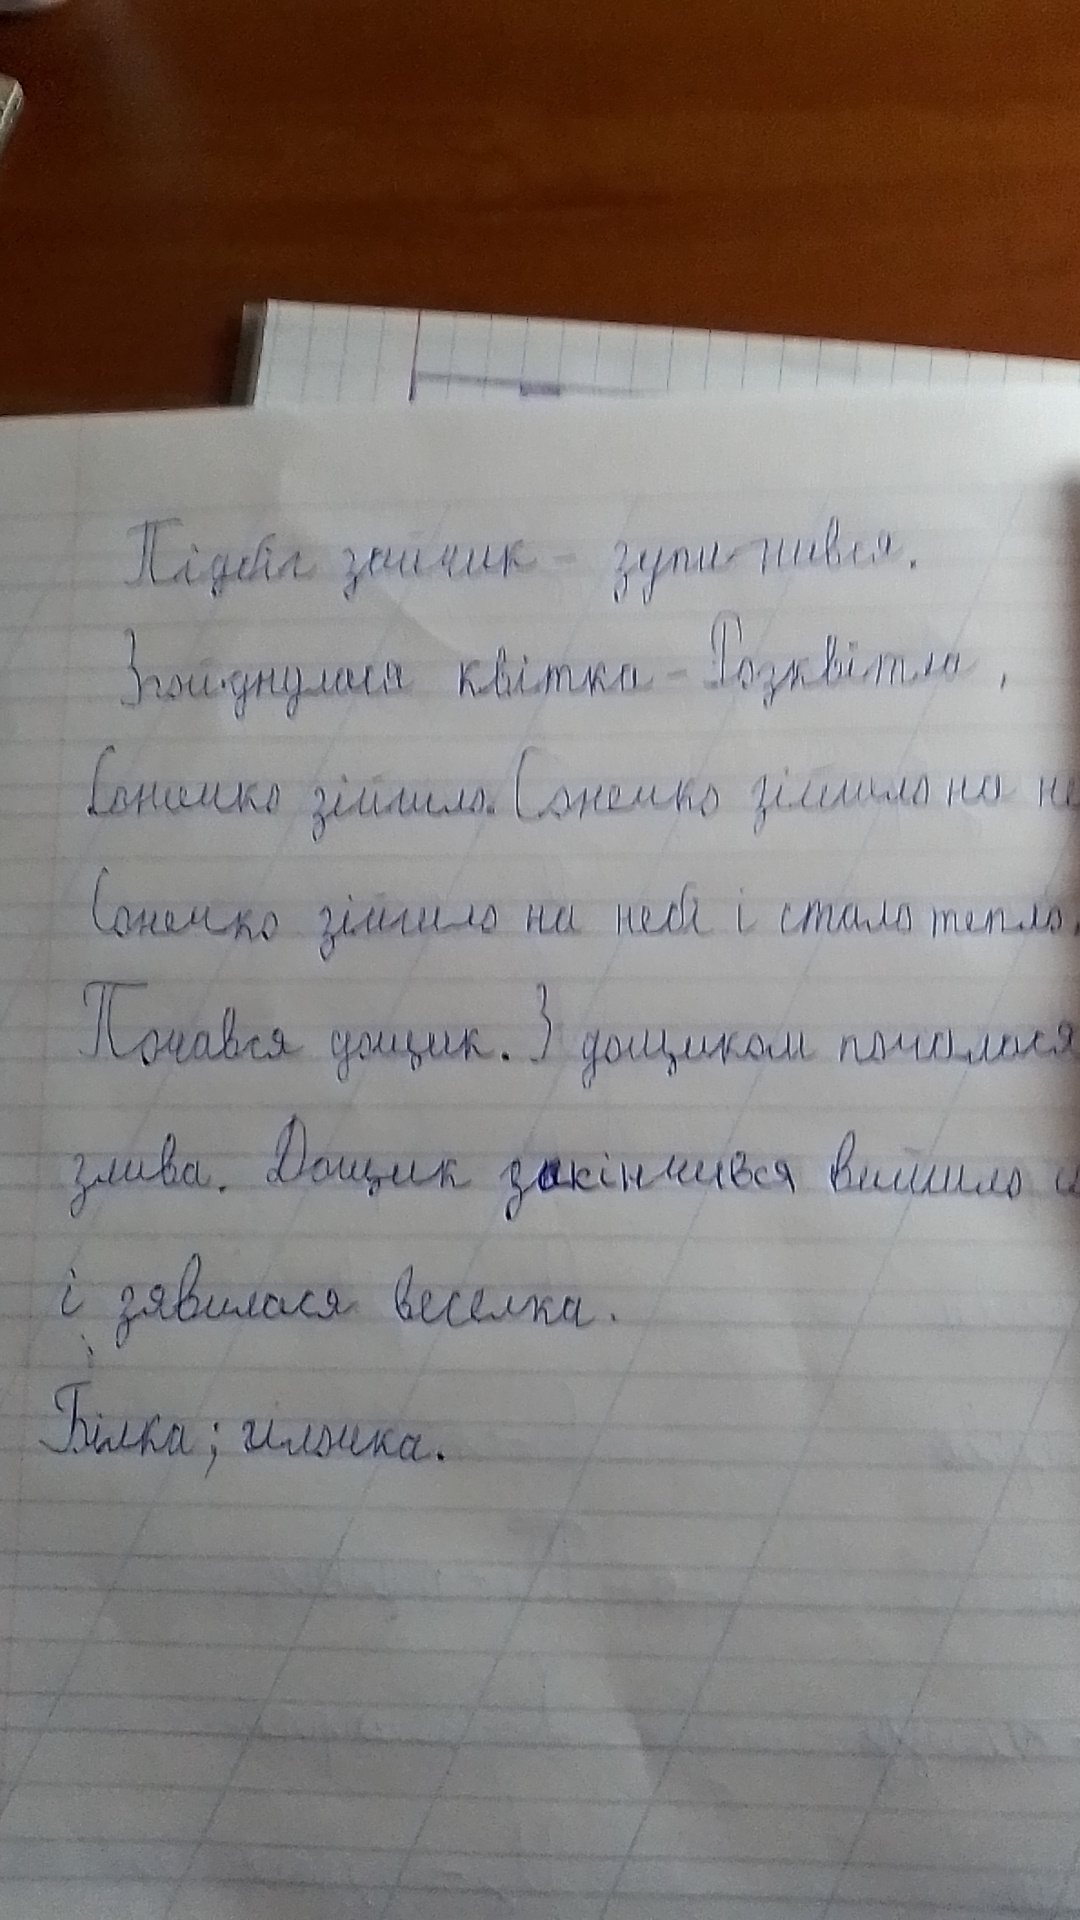 Підбіг зайчик - зупи-нився.
Згойднулася квітка - Розквітла,
Сонечко зійшло. Сонечко зійшло на не
Сонечко зійшло на небі і стало тепло.
Почався дощик. З дощиком почалася
злива. Дощик закінчився вийшло
і зявилася веселка.
Білка; гілочка.